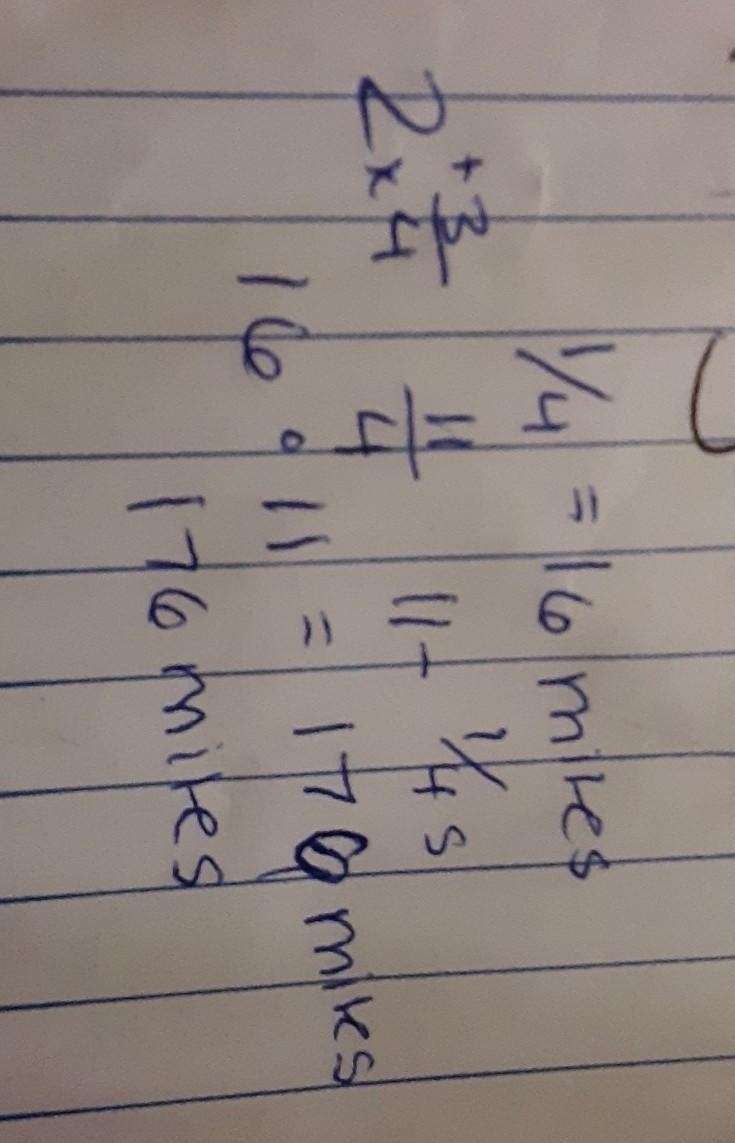 1/4 = 16 miles
2 + 3/4 × 11/4 11 - 1/4 s
16 · 11 = 176 miles
176 miles